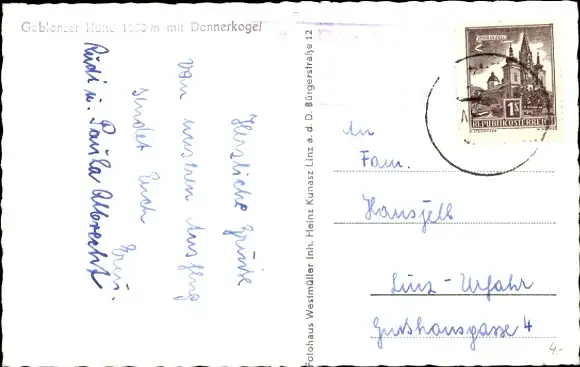 Gablonzer Hütte 1550 m mit Donnerkogel
Herzliche Grüße
von unsren Ausflug
sendet Euch
Erni.
Rudi u. Paula Albrecht
Fotohaus Westmüller Inh. Heinz Kunasz Linz a. d. D. Bürgerstraße 12
REPUBLIK ÖSTERREICH
1S
An
Fam.
Hansjelb
Linz - Urfahr
4
4.-